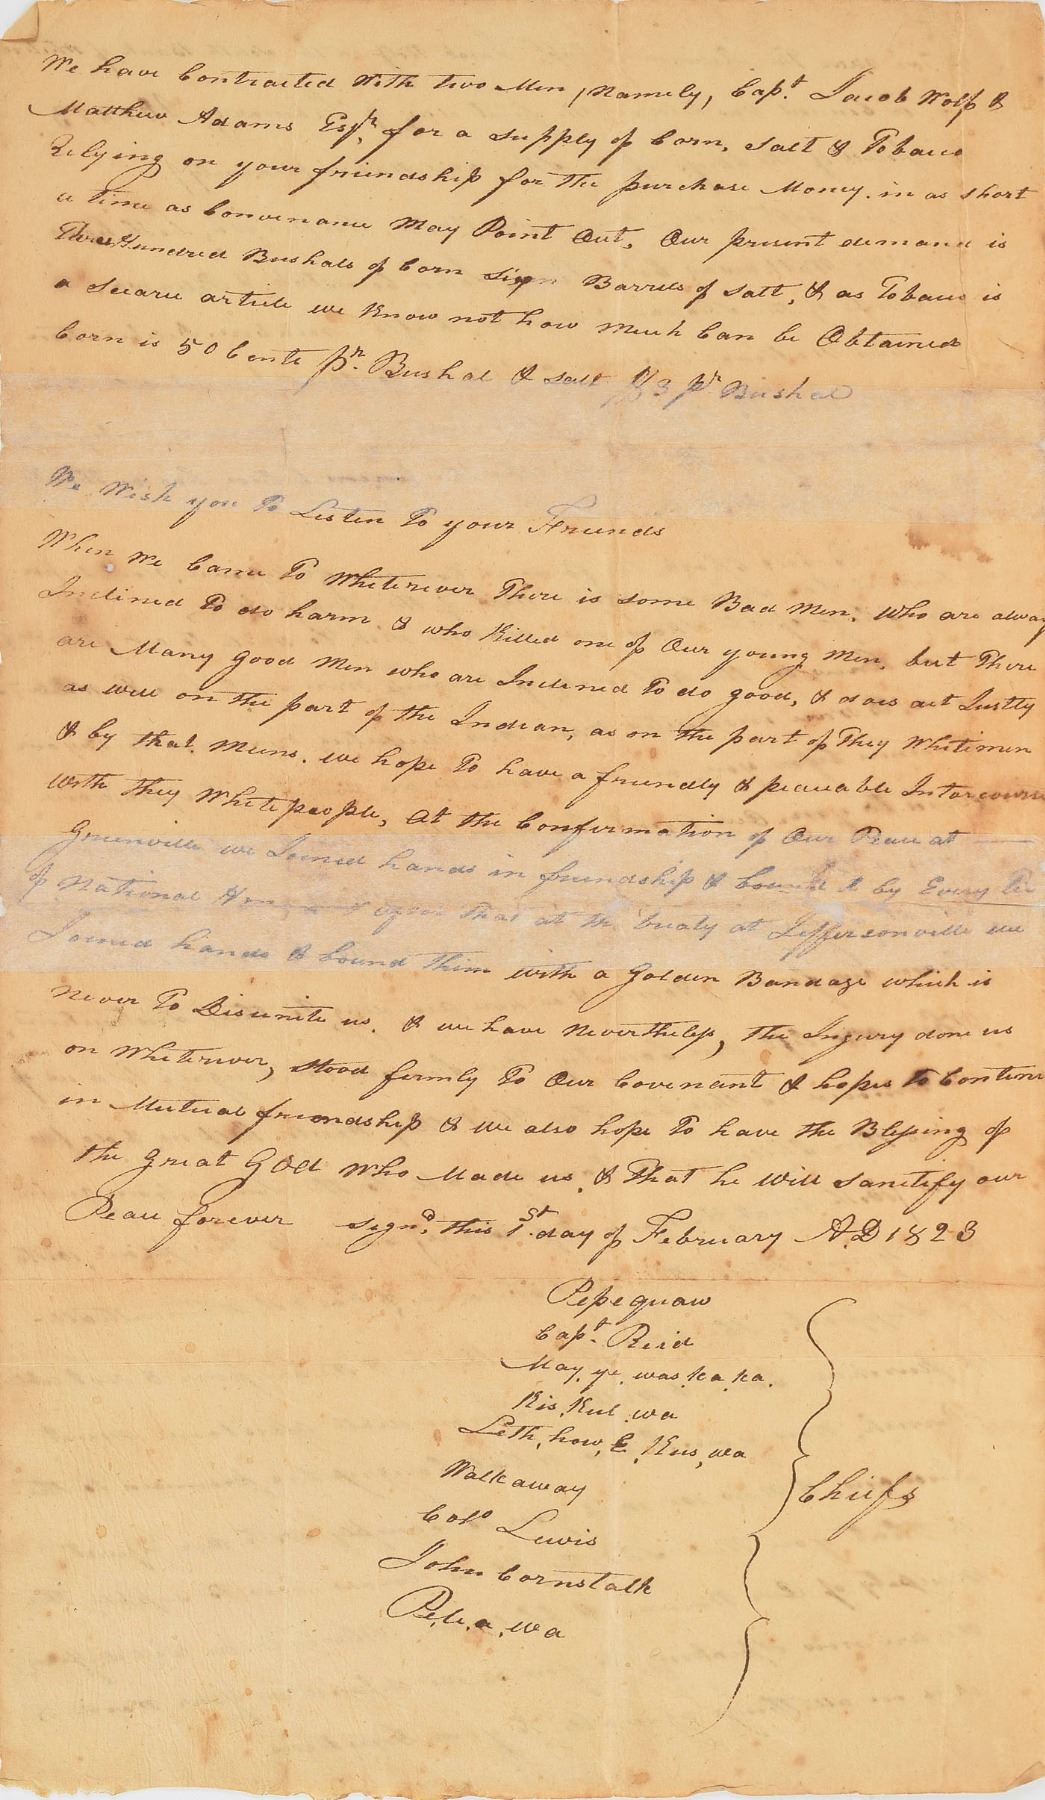 We have Contracted With two Men, Namely, Capt. Jacob Wolf &
Matthew Adams Esqr. for a supply of Corn, Salt & Tobaco
Relying on your friendship for the purchase Money. in as short
a time as Convenance May Point Out, Our present demand is
Three Hundred Bushals of Corn Six Barrels of Salt, & as Tobaco is
a Scarce article we Know not how Much Can be Obtained
Corn is 50 Cents pr. Bushal & Salt $3 pr Bushal
We Wish you To Listen To your Friends
When We Came To Whiteriver There is some Bad Men, Who are alway
Inclined To do harm & who Killed one of Our young Men, but There
are Many Good Men who are Inclined To do good, & does act Justly
as well on the part of the Indian, as on the part of They Whitemen
& by that Means. we hope To have a friendly & peaceable Intercourse
With they White people, At the Confirmation of Our Peace at
Greenville we Joined hands in friendship & bound it by Every Tie
of National upon That at the treaty at Jeffersonville we
Joined hands & bound Them with a Golden Bandage which is
Never To Disunite us. & we have Nevertheless, the Injury done us
on Whiteriver, stood firmly To Our Covenant & hopes to Continue
in Mutual friendship & We also hope To have the Blessing of
the Great God Who Made us, & That he Will Sanctify our
Peace forever Signd. this 1st. day of February A.D 1823
Pepequaw
Capt. Reid
May. ye. was. ka. ka.
Kis. Kul. wa
Leth. how. E. Kus. wa
Walkaway
Colo Lewis
John Cornstalk
Pe. le. a. wa
Chiefs